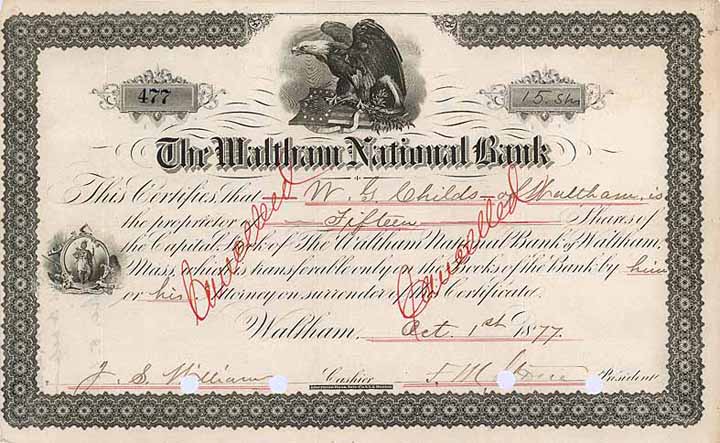 477
15 Shs
The Waltham National Bank
This Certifies that W. G. Childs of Waltham, is
the proprietor of Fifteen Shares of
the Capital Stock of The Waltham National Bank of Waltham,
Mass. which is transferable only on the Books of the Bank by him
or his Attorney on surrender of this Certificate.
Cancelled
Cancelled
Waltham, Oct. 1st 1877.
J. S. William Cashier F. M. President